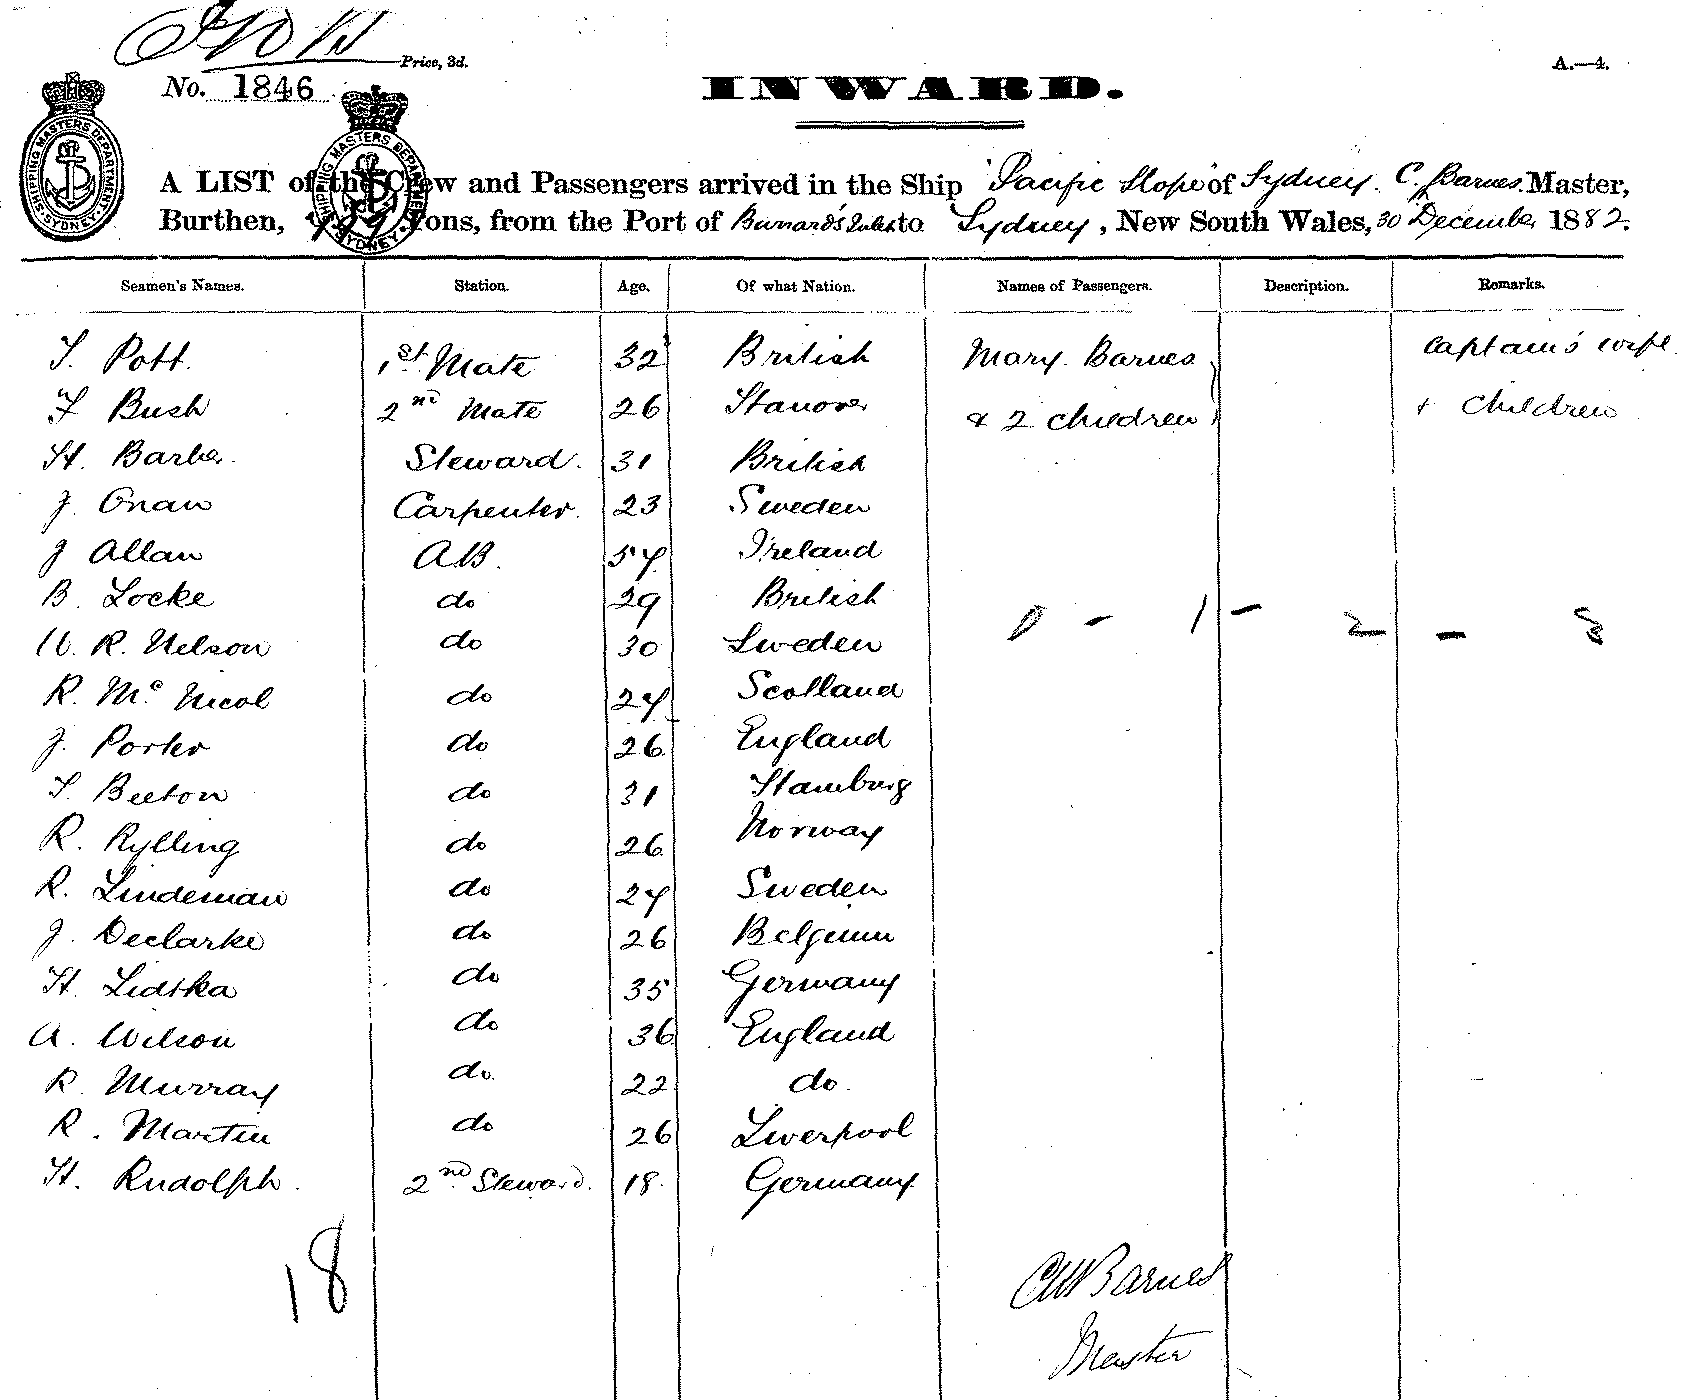 Price, 3d.
A.—4.
No. 1846
INWARD.
SHIPPING MASTERS DEPARTMENT SYDNEY
SHIPPING MASTERS DEPARTMENT SYDNEY
A LIST of the Crew and Passengers arrived in the Ship "Pacific Slope" of Sydney. C. Barnes. Master,
Burthen, Tons, from the Port of Burrard's Inlet to Sydney, New South Wales, 30 December 1882.
Seamen's Names. Station. Age. Of what Nation. Names of Passengers. Description. Remarks.
T. Pott. 1st Mate 32 British Mary Barnes Captain's wife
F Bush 2nd Mate 26 Hanover & 2 children + Children
H. Barber. Steward. 31 British
J. Onan Carpenter. 23 Sweden
J Allan A.B. 54 Ireland
B. Locke do 29 British
R. Nelson do 30 Sweden
0 - 1 - 2 - 3
R. Mc Nicol do 24 Scotland
J. Porter do 26 England
T. Beeton do 31 Hamburg
R. Rylling do 26 Norway
R. Lindeman do 24 Sweden
J. Declarke do 26 Belgium
H. Lidtka do 35 Germany
A. Wilson do 36 England
R. Murray do. 22 do.
R. Martin do 26 Liverpool
H. Rudolph. 2nd Steward. 18. Germany
18
CW Barnes
Master